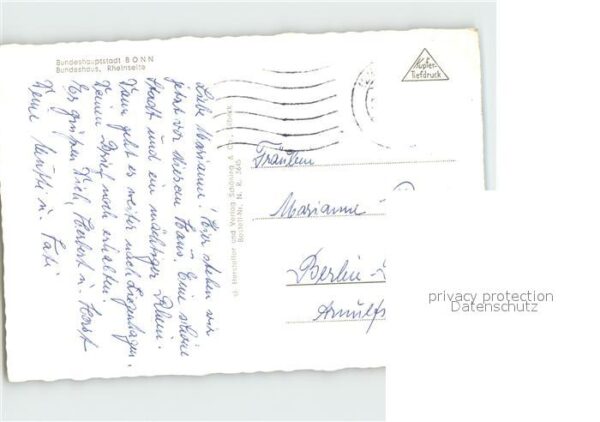 Bundeshauptstadt BONN
Bundeshaus, Rheinseite
Kupfer-
Tiefdruck
Liebe Marianne! Hier stehen wir
jetzt vor diesem Haus. Eine schöne
Stadt und ein mächtiger Rhein.
Dann geht es weiter nach
Deinen Brief noch erhalten.
Es grüßen Dich, Herbert u. Horst
Deine Mutti u. Vati
Hersteller und Verlag Schöning & Co., Lübeck
Bestell-Nr. N. R.
Fräulein
Marianne
Berlin-
Arnulfs
privacy protection
Datenschutz